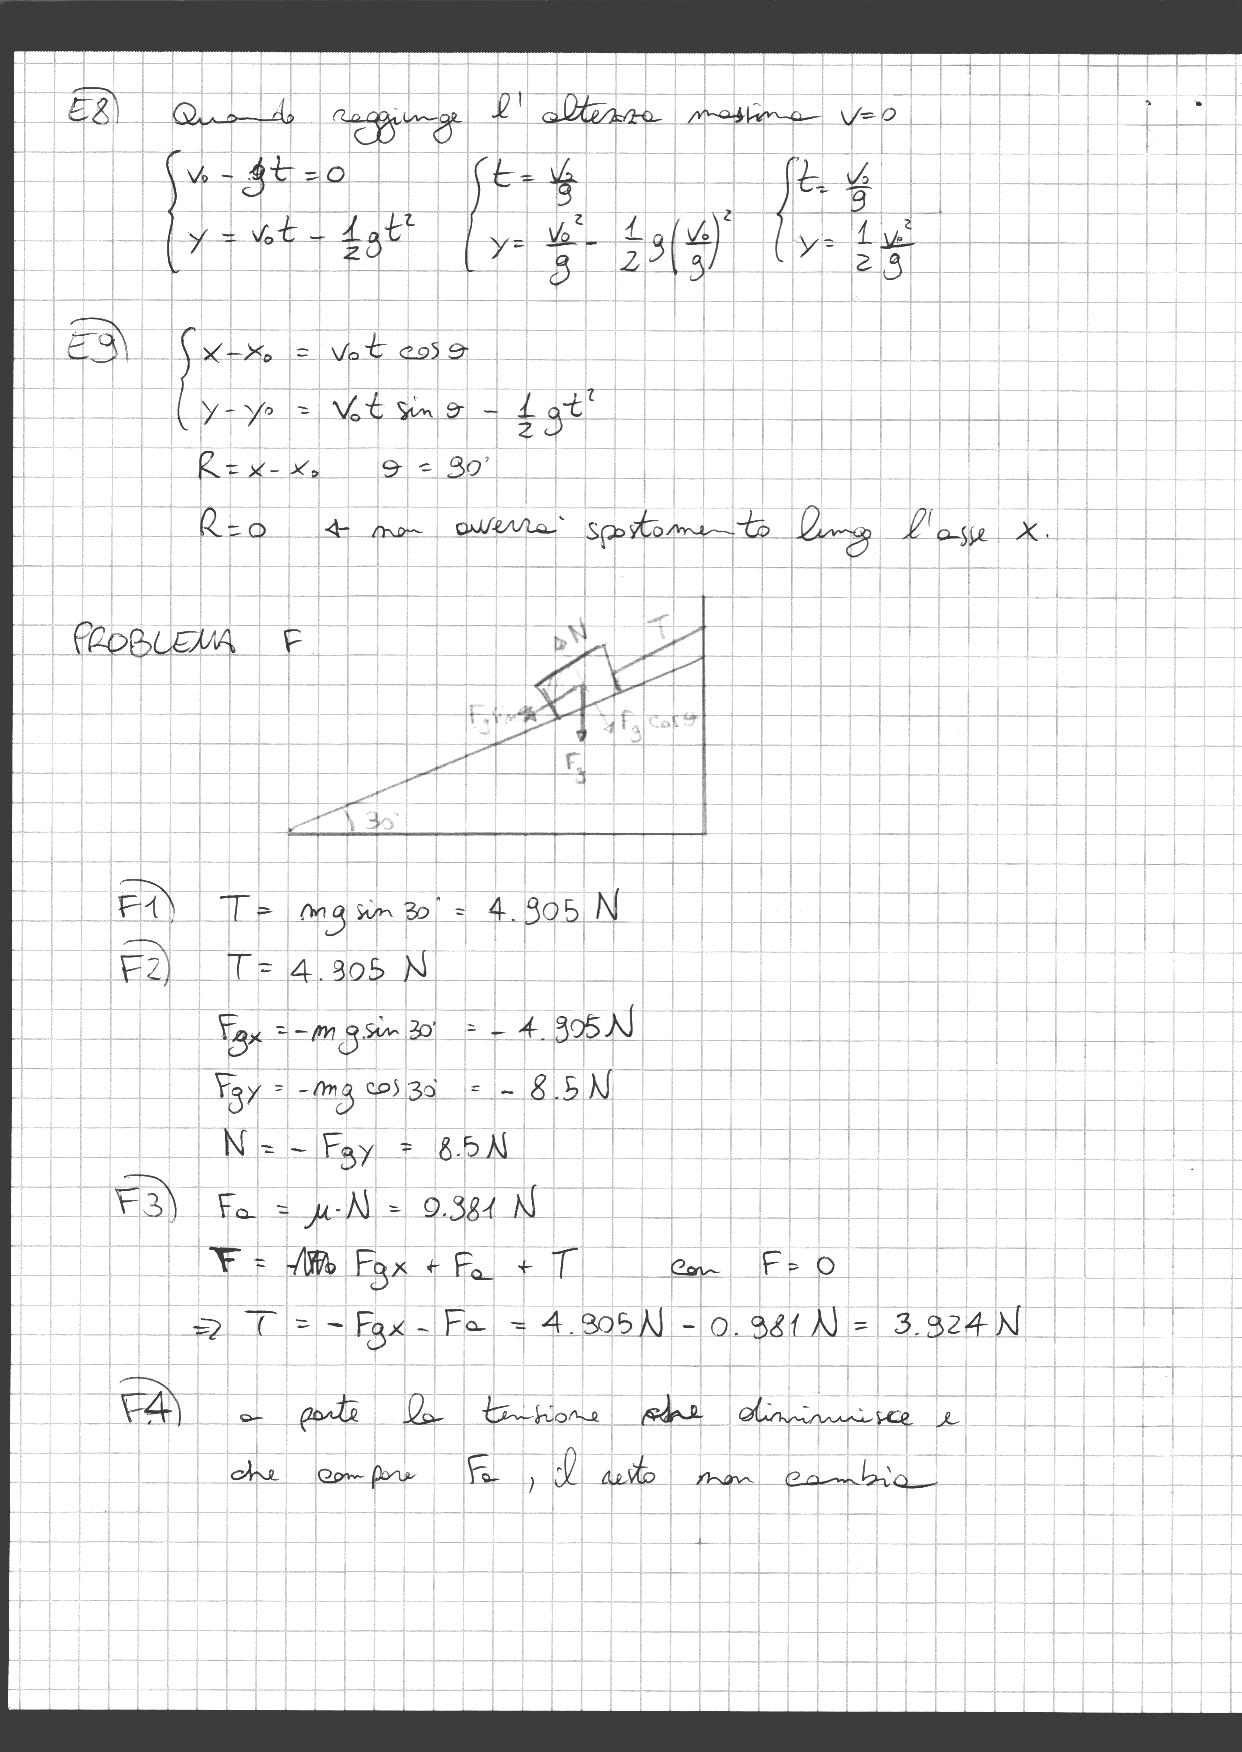 E8) Quando raggiunge l'altezza massima v=0
{ v₀ - gt = 0   { t = v₀/g   { t = v₀/g
{ y = v₀t - 1/2 gt²   { y = v₀²/g - 1/2 g(v₀/g)²   { y = 1/2 v₀²/g
E9) { x-x₀ = v₀t cosθ
{ y-y₀ = v₀t sinθ - 1/2 gt²
R = x-x₀   θ = 90°
R=0 non avverrà spostamento lungo l'asse x.
PROBLEMA F
N
T
Fg cosθ
Fg
30°
F1) T = mg sin 30° = 4.905 N
F2) T = 4.905 N
Fgx = -mg sin 30° = -4.905 N
Fgy = -mg cos 30° = -8.5 N
N = -Fgy = 8.5 N
F3) Fa = μ·N = 0.981 N
F = Fgx + Fa + T   con F = 0
⇒ T = -Fgx - Fa = 4.905 N - 0.981 N = 3.924 N
F4) a parte la tensione che diminuisce e
che compare Fa, il resto non cambia